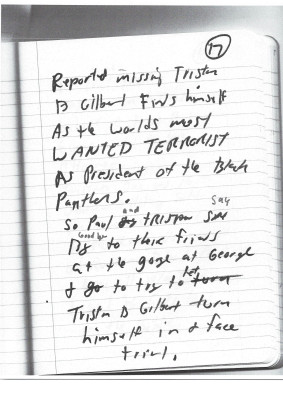 17
Reported missing Tristan
D Gilbert Finds himself
As the worlds most
WANTED TERRORIST
As President of the Black
Panthers.
So Paul and TRISTAN say
Good bye to their friends
at the gorge at George
& go to try to let
Tristan D Gilbert turn
himself in & face
trial.